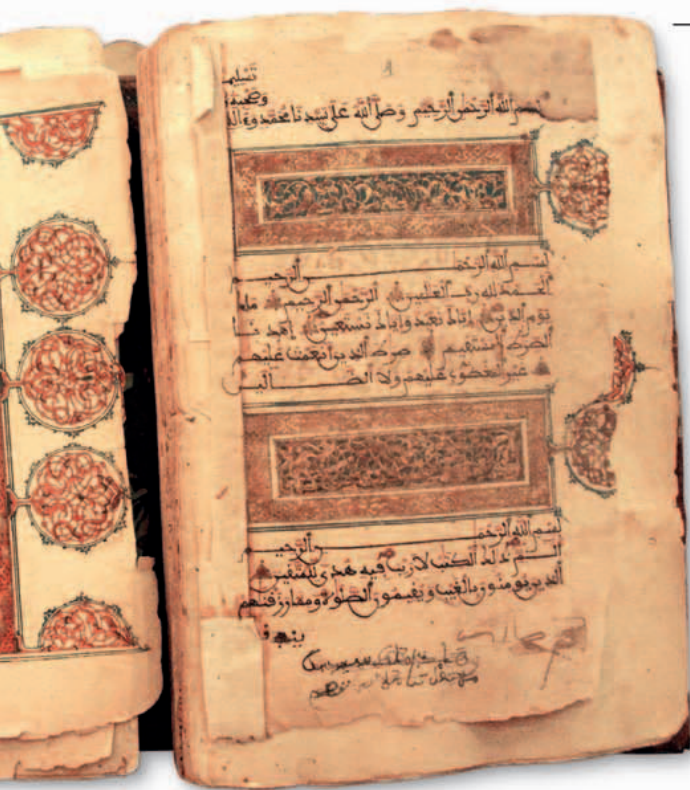 تسليما
وصحبه
بسم الله الرحمن الرحيم وصلى الله على سيدنا محمد وءاله
بسم الله الرحمن الرحيم
الحمد لله رب العلمين الرحمن الرحيم ملك
يوم الدين إياك نعبد وإياك نستعين إهدنا
الصرط المستقيم صرط الذين أنعمت عليهم
غير المغضوب عليهم ولا الضالين
بسم الله الرحمن الرحيم
الم ذلك الكتب لا ريب فيه هدى للمتقين
الذين يومنون بالغيب ويقيمون الصلوة ومما رزقنهم
ينفقو